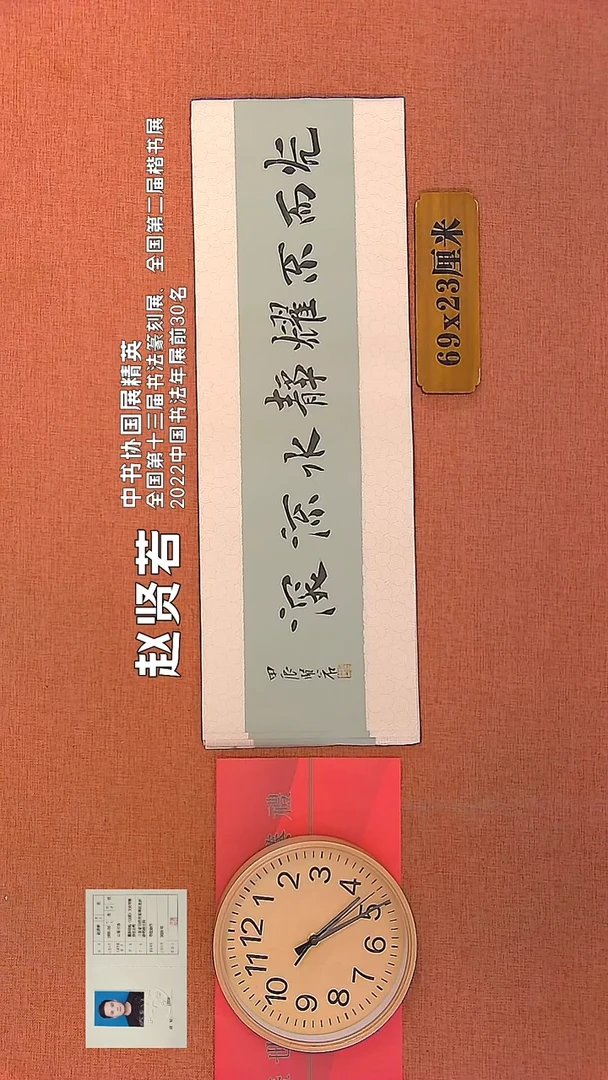 赵贤若
中书协国展精英
全国第十三届书法篆刻展、全国第二届楷书展
2022中国书法年展前30名
光而不耀静水流深
69x23厘米
禮
12
1
2
3
4
5
6
7
8
9
10
11